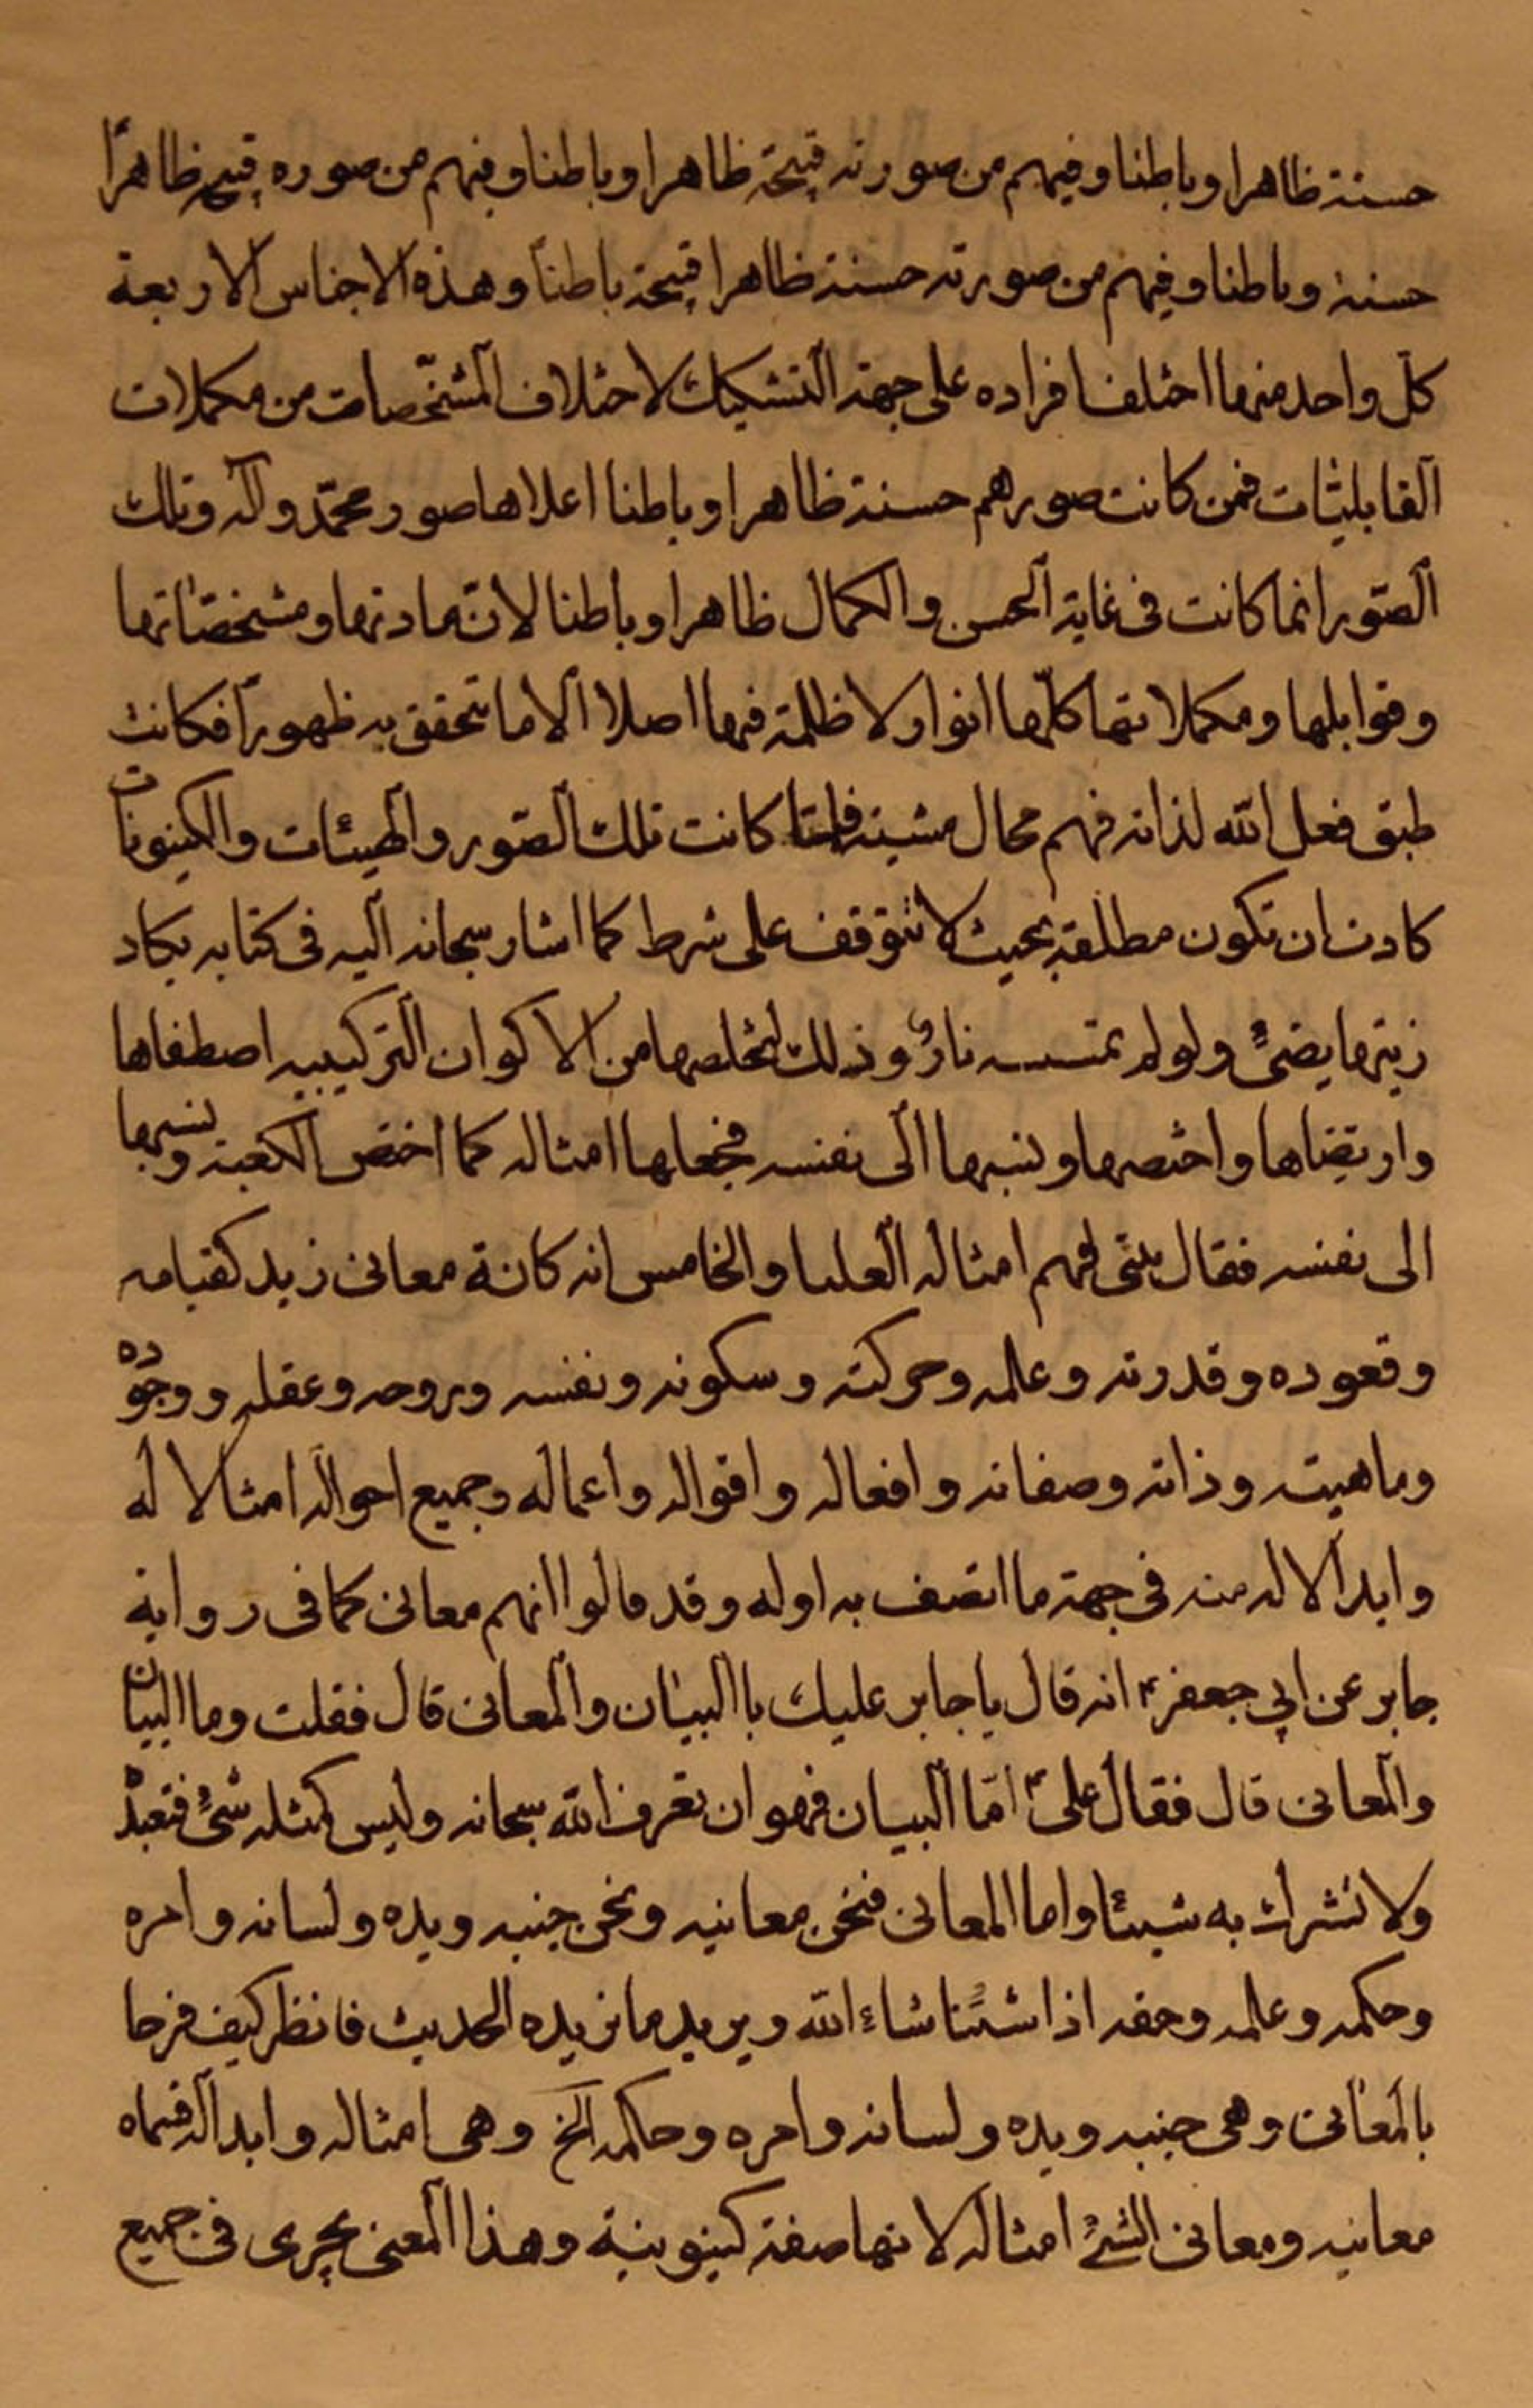 حسنة ظاهرا وباطنا وفيهم من صورته قبيحة ظاهرا وباطنا وفيهم من صوره قبيح ظاهرًا
حسنة وباطنا وفيهم من صورته حسنة ظاهرا قبيحة باطنًا وهذه الاجناس الاربعة
كلّ واحد منها اختلف افراده على جهة التشكيك لاختلاف المشخّصات من مكملات
القابليّات فمن كانت صورهم حسنة ظاهرا وباطنا اعلاها صور محمّد وآله وتلك
الصّور انما كانت فى غاية الحسن والكمال ظاهرا وباطنا لانّ مادتها ومشخصّاتها
وقوابلها ومكملاتها كلّها انوار ولا ظلمة فيها اصلا الا ما تتحقق به ظهورًا فكانت
طبق فعل الله لذاته فهم محال مشيته فلمّا كانت تلك الصّور والهيئات والكينونات
كادت ان تكون مطلقة بحيث لا تتوقف على شرط كما اشار سبحانه اليه فى كتابه يكاد
زيتها يضئ ولو لم تمسسه نارٌ وذلك لتخلصها من الاكوان التركيبيه اصطفاها
وارتضاها واختصها ونسبها الى نفسه فجعلها امثاله كما اختص الكعبة ونسبها
الى نفسه فقال بيتى فهم امثاله العليا والخامس انه كانة معانى زيد كقيامه
وقعوده وقدرته وعلمه وحركته وسكونه ونفسه وروحه وعقله ووجوده
وماهيته وذاته وصفاته وافعاله واقواله واعماله وجميع احواله امثالا له
وابدالا له منه فى جهة ما اتصف به اوله وقد قالوا انهم معانى كما فى رواية
جابر عن ابي جعفر ع انه قال يا جابر عليك باالبيان والمعانى قال فقلت وما البيان
والمعانى قال فقال علىّ ع امّا البيان فهو ان تعرف الله سبحانه وليس كمثله شئ فتعبدْ
ولا تشرك به شيئا واما المعانى فنحن معانيه ونحن جنبه ويده ولسانه وامره
وحكمه وعلمه وحقه اذا شئنا شاء الله ويريد ما نريده الحديث فانظر كيف
بالمعانى وهى جنبه ويده ولسانه وامره وحكمه الخ وهى امثاله وابداله
معانيه ومعانى الشئ امثاله لانها صفة كينونية وهذا المعنى يجرى فى جميع